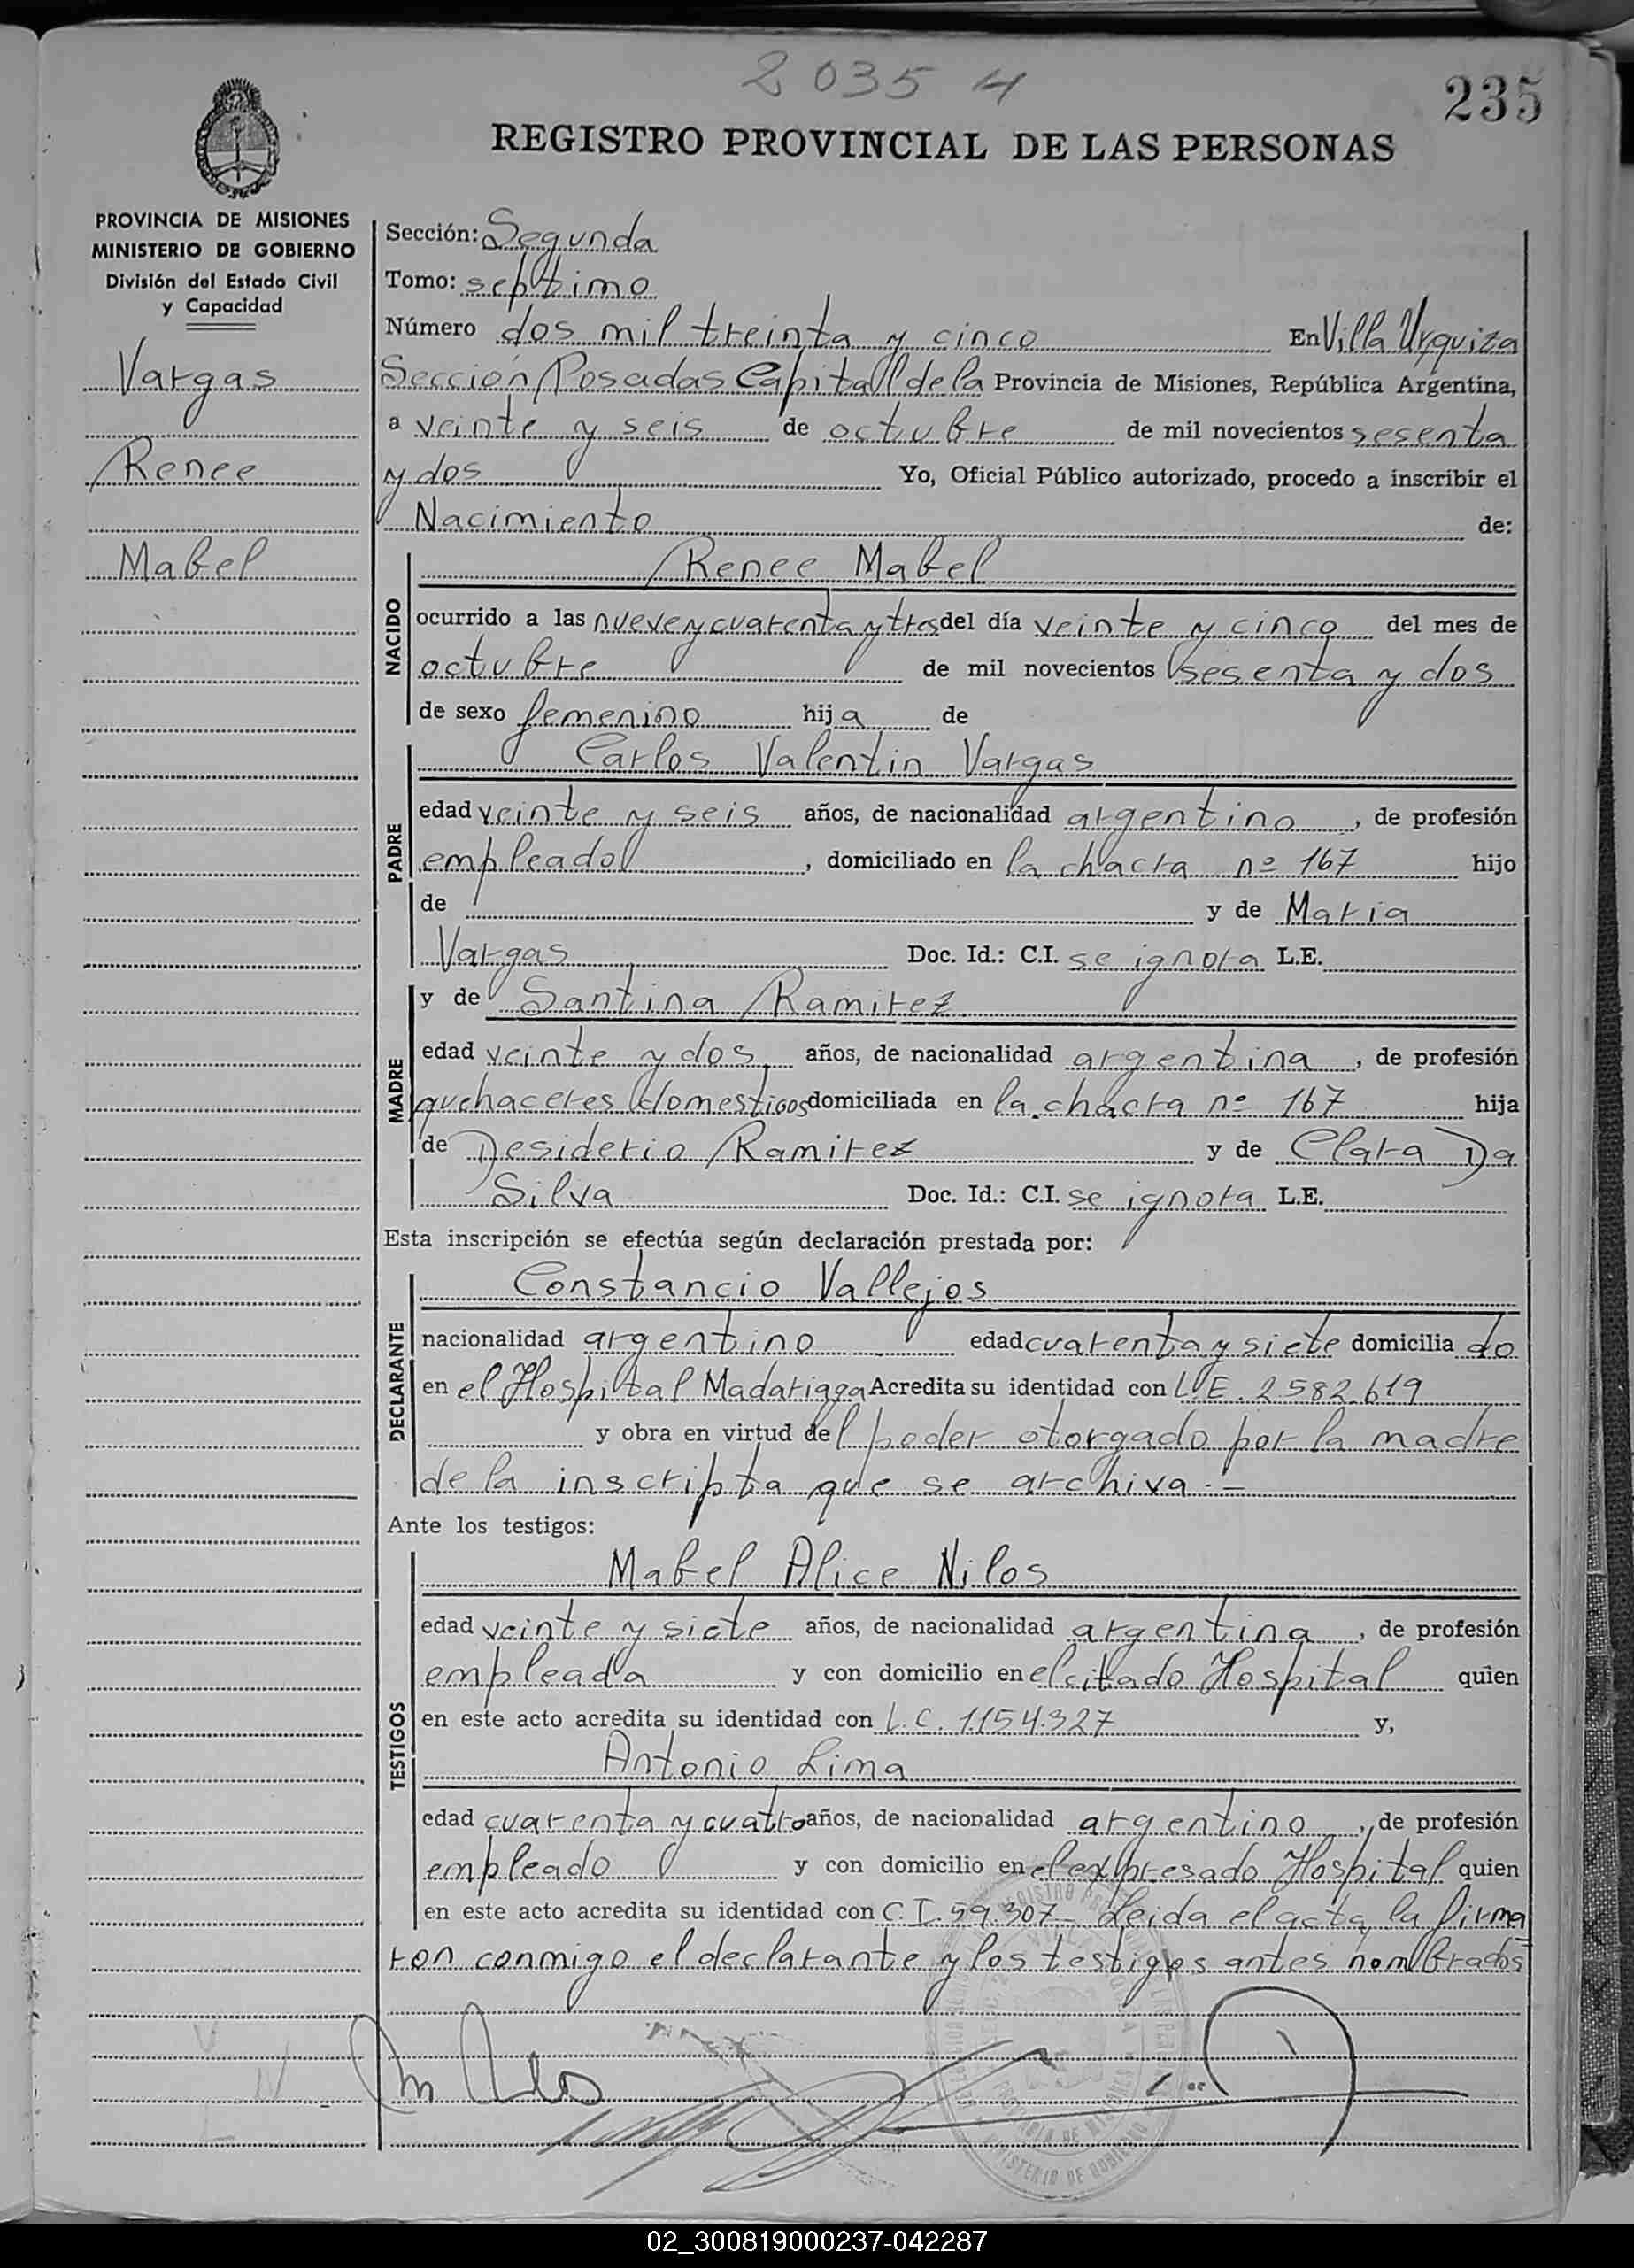 2035 4
235
REGISTRO PROVINCIAL DE LAS PERSONAS
PROVINCIA DE MISIONES
MINISTERIO DE GOBIERNO
División del Estado Civil
y Capacidad
Vargas
Renee
Mabel
Sección: Segunda
Tomo: septimo
Número dos mil treinta y cinco En Villa Urquiza
Sección Posadas Capital de la Provincia de Misiones, República Argentina,
a veinte y seis de octubre de mil novecientos sesenta
y dos Yo, Oficial Público autorizado, procedo a inscribir el
Nacimiento de:
NACIDO
Renee Mabel
ocurrido a las nueve y cuarenta y tres del día veinte y cinco del mes de
octubre de mil novecientos sesenta y dos
de sexo femenino hija de
PADRE
Carlos Valentin Vargas
edad veinte y seis años, de nacionalidad argentino, de profesión
empleado, domiciliado en la chacra nº 167 hijo
de y de Maria
Vargas Doc. Id.: C.I. se ignora L.E.
MADRE
y de Santina Ramirez
edad veinte y dos años, de nacionalidad argentina, de profesión
quehaceres domesticos domiciliada en la chacra nº 167 hija
de Desiderio Ramirez y de Clara Da
Silva Doc. Id.: C.I. se ignora L.E.
Esta inscripción se efectúa según declaración prestada por:
DECLARANTE
Constancio Vallejos
nacionalidad argentino edad cuarenta y siete domicilia do
en el Hospital Madariaga Acredita su identidad con L.E. 2582.619
y obra en virtud del poder otorgado por la madre
de la inscripta que se archiva.-
Ante los testigos:
TESTIGOS
Mabel Alice Nilos
edad veinte y siete años, de nacionalidad argentina, de profesión
empleada y con domicilio en el citado Hospital quien
en este acto acredita su identidad con L.C. 1.154.327 y,
Antonio Lima
edad cuarenta y cuatro años, de nacionalidad argentino, de profesión
empleado y con domicilio en el expresado Hospital quien
en este acto acredita su identidad con C.I. 59.307 - Leida el acta, la firma
ron conmigo el declarante y los testigos antes nombrados
02_300819000237-042287